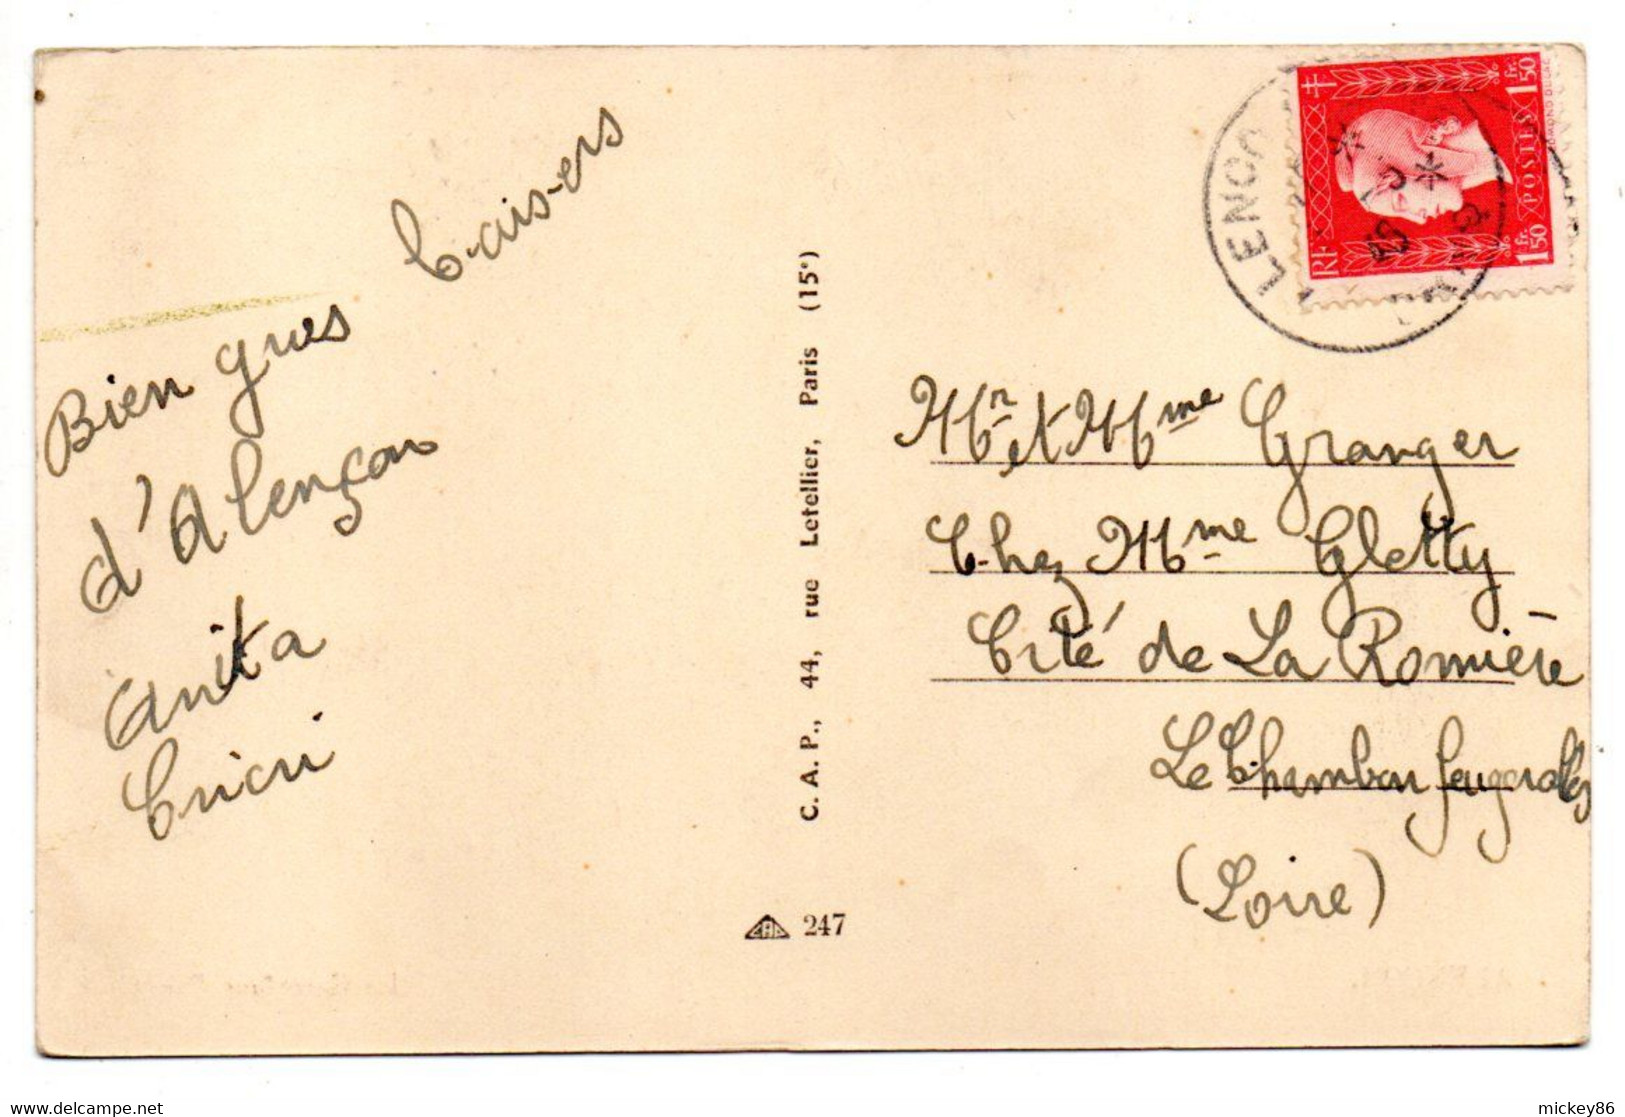 Bien grues bais-ers
d'Alençon
Anita
Cricri
C. A. P., 44, rue Letellier, Paris (15e)
CAP 247
RF
POSTES
1 Fr. 50
1 Fr. 50
ALENÇO
Mr et Mme Granger
Chez Mme Gletty
Cité de La Romière
Le Chambon Feugerolles
(Loire)
mickey86